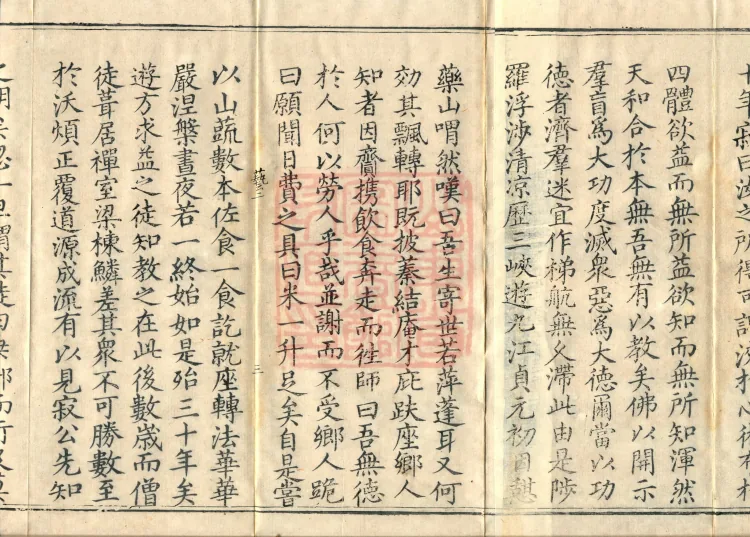 四體欲益而無所益欲知而無所知渾然
天和合於本無吾無有以教矣佛以開示
羣盲爲大功度滅衆惡爲大德爾當以功
德者濟羣迷宜作梯航無久滯此由是陟
羅浮涉清凉歷三峽遊九江貞元初因憩
藥山喟然嘆曰吾生寄世若萍蓬耳又何
効其飄轉耶既披蓁結庵才庇趺座鄉人
知者因齎攜飲食奔走而徃師曰吾無德
於人何以勞人乎哉並謝而不受鄉人跪
曰願聞日費之具曰米一升足矣自是嘗
二
以山蔬數本佐食一食訖就座轉法華華
嚴涅槃晝夜若一終始如是殆三十年矣
遊方求益之徒知教之在此後數歲而僧
徒葺居禪室梁棟鱗差其衆不可勝數至
於沃煩正覆道源成流有以見寂公先知